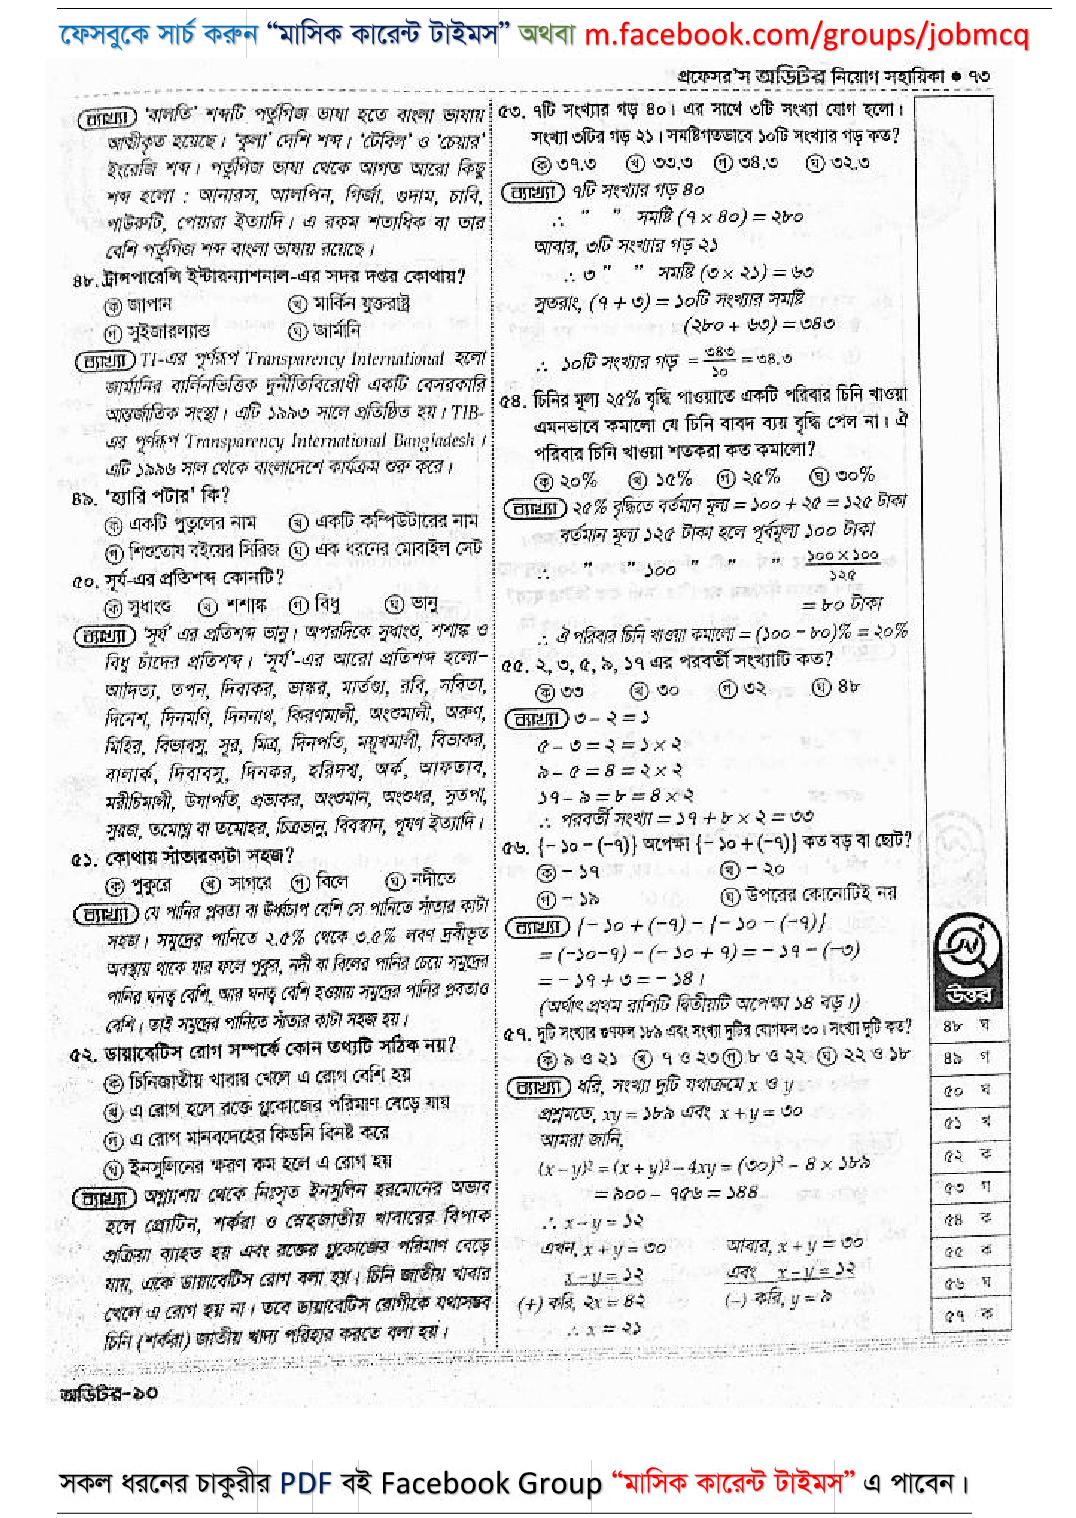 ফেসবুকে সার্চ করুন “মাসিক কারেন্ট টাইমস” অথবা m.facebook.com/groups/jobmcq
প্রফেসর'স অডিটর নিয়োগ সহায়িকা ● ৭৩
ব্যাখ্যা 'বালতি' শব্দটি পর্তুগিজ ভাষা হতে বাংলা ভাষায়
আত্তীকৃত হয়েছে। 'কুলা' দেশি শব্দ। 'টেবিল' ও 'চেয়ার'
ইংরেজি শব্দ। পর্তুগিজ ভাষা থেকে আগত আরো কিছু
শব্দ হলো : আনারস, আলপিন, গির্জা, গুদাম, চাবি,
পাউরুটি, পেয়ারা ইত্যাদি। এ রকম শতাধিক বা তার
বেশি পর্তুগিজ শব্দ বাংলা ভাষায় রয়েছে।
৪৮. ট্রান্সপারেন্সি ইন্টারন্যাশনাল-এর সদর দপ্তর কোথায়?
ক জাপান খ মার্কিন যুক্তরাষ্ট্র
গ সুইজারল্যান্ড ঘ জার্মানি
ব্যাখ্যা TI-এর পূর্ণরূপ Transparency International হলো
জার্মানির বার্লিনভিত্তিক দুর্নীতিবিরোধী একটি বেসরকারি
আন্তর্জাতিক সংস্থা। এটি ১৯৯৩ সালে প্রতিষ্ঠিত হয়। TIB-
এর পূর্ণরূপ Transparency International Bangladesh।
এটি ১৯৯৬ সাল থেকে বাংলাদেশে কার্যক্রম শুরু করে।
৪৯. 'হ্যারি পটার' কি?
ক একটি পুতুলের নাম খ একটি কম্পিউটারের নাম
গ শিশুতোষ বইয়ের সিরিজ ঘ এক ধরনের মোবাইল সেট
৫০. সূর্য-এর প্রতিশব্দ কোনটি?
ক সুধাংশু খ শশাঙ্ক গ বিধু ঘ ভানু
ব্যাখ্যা 'সূর্য' এর প্রতিশব্দ ভানু। অপরদিকে সুধাংশু, শশাঙ্ক ও
বিধু চাঁদের প্রতিশব্দ। 'সূর্য'-এর আরো প্রতিশব্দ হলো–
আদিত্য, তপন, দিবাকর, ভাস্কর, মার্তণ্ড, রবি, সবিতা,
দিনেশ, দিনমণি, দিননাথ, কিরণমালী, অংশুমালী, অরুণ,
মিহির, বিভাবসু, সূর, মিত্র, দিনপতি, ময়ূখমালী, বিভাকর,
বালার্ক, দিবাবসু, দিনকর, হরিদশ্ব, অর্ক, আফতাব,
মরীচিমালী, উষাপতি, প্রভাকর, অংশুমান, অংশুধর, সুতপা,
সুরজ, তমোঘ্ন বা তমোহর, চিত্রভানু, বিবস্বান, পূষণ ইত্যাদি।
৫১. কোথায় সাঁতারকাটা সহজ?
ক পুকুরে খ সাগরে গ বিলে ঘ নদীতে
ব্যাখ্যা যে পানির প্লবতা বা ঊর্ধ্বচাপ বেশি সে পানিতে সাঁতার কাটা
সহজ। সমুদ্রের পানিতে ২.৫% থেকে ৩.৫% লবণ দ্রবীভূত
অবস্থায় থাকে যার ফলে পুকুর, নদী বা বিলের পানির চেয়ে সমুদ্রের
পানির ঘনত্ব বেশি, আর ঘনত্ব বেশি হওয়ায় সমুদ্রের পানির প্লবতাও
বেশি। তাই সমুদ্রের পানিতে সাঁতার কাটা সহজ হয়।
৫২. ডায়াবেটিস রোগ সম্পর্কে কোন তথ্যটি সঠিক নয়?
ক চিনিজাতীয় খাবার খেলে এ রোগ বেশি হয়
খ এ রোগ হলে রক্তে গ্লুকোজের পরিমাণ বেড়ে যায়
গ এ রোগ মানবদেহের কিডনি বিনষ্ট করে
ঘ ইনসুলিনের ক্ষরণ কম হলে এ রোগ হয়
ব্যাখ্যা অগ্ন্যাশয় থেকে নিঃসৃত ইনসুলিন হরমোনের অভাব
হলে প্রোটিন, শর্করা ও স্নেহজাতীয় খাবারের বিপাক
প্রক্রিয়া ব্যাহত হয় এবং রক্তের গ্লুকোজের পরিমাণ বেড়ে
যায়, একে ডায়াবেটিস রোগ বলা হয়। চিনি জাতীয় খাবার
খেলে এ রোগ হয় না। তবে ডায়াবেটিস রোগীকে যথাসম্ভব
চিনি (শর্করা) জাতীয় খাদ্য পরিহার করতে বলা হয়।
৫৩. ৭টি সংখ্যার গড় ৪০। এর সাথে ৩টি সংখ্যা যোগ হলো।
সংখ্যা ৩টির গড় ২১। সমষ্টিগতভাবে ১০টি সংখ্যার গড় কত?
ক ৩৭.৩ খ ৩৩.৩ গ ৩৪.৩ ঘ ৩২.৩
ব্যাখ্যা ৭টি সংখ্যার গড় ৪০
∴ " " সমষ্টি (৭ × ৪০) = ২৮০
আবার, ৩টি সংখ্যার গড় ২১
∴ ৩ " " সমষ্টি (৩ × ২১) = ৬৩
সুতরাং, (৭ + ৩) = ১০টি সংখ্যার সমষ্টি
(২৮০ + ৬৩) = ৩৪৩
∴ ১০টি সংখ্যার গড় = ৩৪৩/১০ = ৩৪.৩
৫৪. চিনির মূল্য ২৫% বৃদ্ধি পাওয়াতে একটি পরিবার চিনি খাওয়া
এমনভাবে কমালো যে চিনি বাবদ ব্যয় বৃদ্ধি পেল না। ঐ
পরিবার চিনি খাওয়া শতকরা কত কমালো?
ক ২০% খ ১৫% গ ২৫% ঘ ৩০%
ব্যাখ্যা ২৫% বৃদ্ধিতে বর্তমান মূল্য = ১০০ + ২৫ = ১২৫ টাকা
বর্তমান মূল্য ১২৫ টাকা হলে পূর্বমূল্য ১০০ টাকা
∴ " " ১০০ " " " ১০০ × ১০০/১২৫
= ৮০ টাকা
∴ ঐ পরিবার চিনি খাওয়া কমালো = (১০০ – ৮০)% = ২০%
৫৫. ২, ৩, ৫, ৯, ১৭ এর পরবর্তী সংখ্যাটি কত?
ক ৩৩ খ ৩০ গ ৩২ ঘ ৪৮
ব্যাখ্যা ৩ – ২ = ১
৫ – ৩ = ২ = ১ × ২
৯ – ৫ = ৪ = ২ × ২
১৭ – ৯ = ৮ = ৪ × ২
∴ পরবর্তী সংখ্যা = ১৭ + ৮ × ২ = ৩৩
৫৬. {– ১০ – (–৭)} অপেক্ষা {– ১০ + (–৭)} কত বড় বা ছোট?
ক – ১৭ খ – ২০
গ – ১৯ ঘ উপরের কোনোটিই নয়
ব্যাখ্যা {– ১০ + (–৭) – {– ১০ – (–৭)}
= (–১০–৭) – (– ১০ + ৭) = – ১৭ – (–৩)
= – ১৭ + ৩ = – ১৪।
(অর্থাৎ প্রথম রাশিটি দ্বিতীয়টি অপেক্ষা ১৪ বড়।)
৫৭. দুটি সংখ্যার গুণফল ১৮৯ এবং সংখ্যা দুটির যোগফল ৩০। সংখ্যা দুটি কত?
ক ৯ ও ২১ খ ৭ ও ২৩ গ ৮ ও ২২ ঘ ২২ ও ১৮
ব্যাখ্যা ধরি, সংখ্যা দুটি যথাক্রমে x ও y
প্রশ্নমতে, xy = ১৮৯ এবং x + y = ৩০
আমরা জানি,
(x – y)² = (x + y)² – 4xy = (৩০)² – ৪ × ১৮৯
= ৯০০ – ৭৫৬ = ১৪৪
∴ x – y = ১২
এখন, x + y = ৩০ আবার, x + y = ৩০
x – y = ১২ এবং x – y = ১২
(+) করি, ২x = ৪২ (–) করি, y = ৯
∴ x = ২১
উত্তর
৪৮ ঘ
৪৯ গ
৫০ ঘ
৫১ খ
৫২ ক
৫৩ গ
৫৪ ক
৫৫ ক
৫৬ ঘ
৫৭ ক
অডিটর-১০
সকল ধরনের চাকুরীর PDF বই Facebook Group “মাসিক কারেন্ট টাইমস” এ পাবেন।